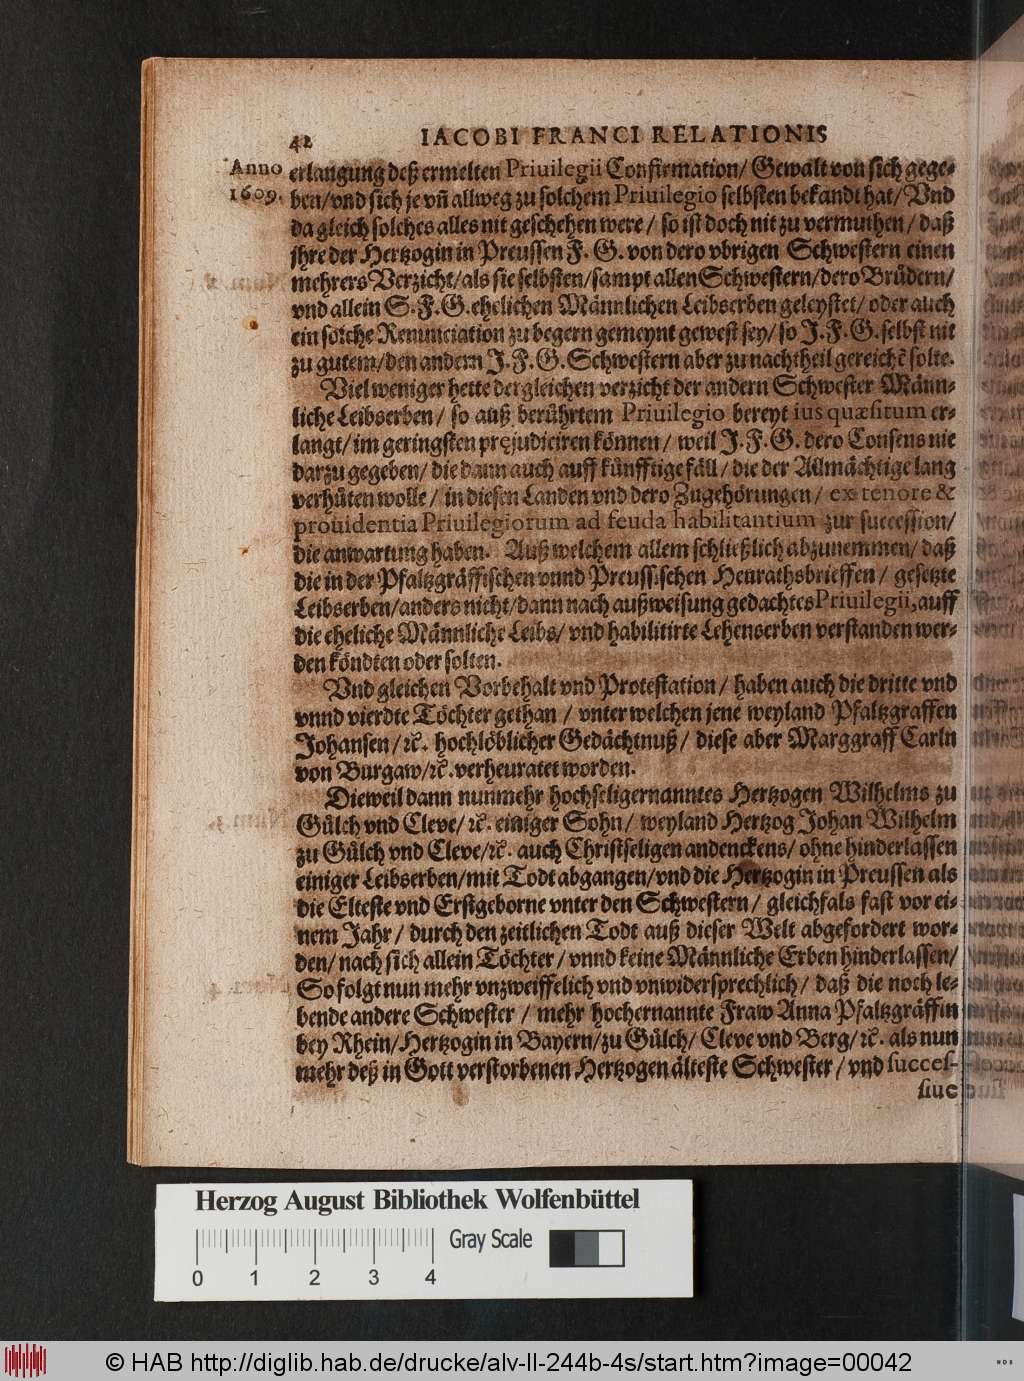 42 IACOBI FRANCI RELATIONIS
Anno 1609.
erlangung deß ermelten Priuilegii Confirmation/ Gewalt von sich gege-
ben/ vnd sich je vñ allweg zu solchem Priuilegio selbsten bekandt hat/ Vnd
da gleich solches alles nit geschehen were / so ist doch nit zu vermuthen / daß
jhre der Hertzogin in Preussen F. G. von dero vbrigen Schwestern einen
mehrers Verzicht/ als sie selbsten/ sampt allen Schwestern/ dero Brüdern/
vnd allein S. F. G. ehelichen Männlichen Leibserben geleystet/ oder auch
ein solche Renunciation zu begern gemeynt gewest sey/ so J. F. G. selbst nit
zu gutem/ den andern J. F. G. Schwestern aber zu nachtheil gereichẽ solte.
Viel weniger hette dergleichen verzicht der andern Schwester Männ-
liche Leibserben / so auß berührtem Priuilegio bereyt ius quæsitum er-
langt/ im geringsten pręjudiciren können / weil J. F. G. dero Consens nie
darzu gegeben/ die dann auch auff künfftige fäll / die der Allmächtige lang
verhüten wolle / in diesen Landen vnd dero Zugehörungen / ex tenore &
prouidentia Priuilegiorum ad feuda habilitantium zur succession/
die anwartung haben. Auß welchem allem schließlich abzunemmen/ daß
die in der Pfaltzgräffischen vnnd Preussischen Heurathsbrieffen / gesetzte
Leibserben/ anders nicht/ dann nach außweisung gedachtes Priuilegii, auff
die eheliche Männliche Leibs/ vnd habilitirte Lehenserben verstanden wer-
den köndten oder solten.
Vnd gleichen Vorbehalt vnd Protestation / haben auch die dritte vnd
vnnd vierdte Töchter gethan / vnter welchen jene weyland Pfaltzgraffen
Johansen / ꝛc. hochlöblicher Gedächtnuß / diese aber Marggraff Carln
von Burgaw/ ꝛc. verheuratet worden.
Dieweil dann nunmehr hochseligernanntes Hertzogen Wilhelms zu
Gülch vnd Cleve/ ꝛc. einiger Sohn / weyland Hertzog Johan Wilhelm
zu Gülch vnd Cleve/ ꝛc. auch Christseligen andenckens/ ohne hinderlassen
einiger Leibserben/ mit Todt abgangen/ vnd die Hertzogin in Preussen als
die Elteste vnd Erstgeborne vnter den Schwestern / gleichfals fast vor ei-
nem Jahr / durch den zeitlichen Todt auß dieser Welt abgefordert wor-
den/ nach sich allein Töchter / vnnd keine Männliche Erben hinderlassen/
So folgt nun mehr vnzweiffelich vnd vnwidersprechlich / daß die noch le-
bende andere Schwester / mehr hochernannte Fraw Anna Pfaltzgräffin
bey Rhein/ Hertzogin in Bayern/ zu Gülch/ Cleve vnd Berg/ ꝛc. als nun
mehr deß in Gott verstorbenen Hertzogen älteste Schwester / vnd succes-
siue
Herzog August Bibliothek Wolfenbüttel
0 1 2 3 4 Gray Scale
© HAB http://diglib.hab.de/drucke/alv-ll-244b-4s/start.htm?image=00042